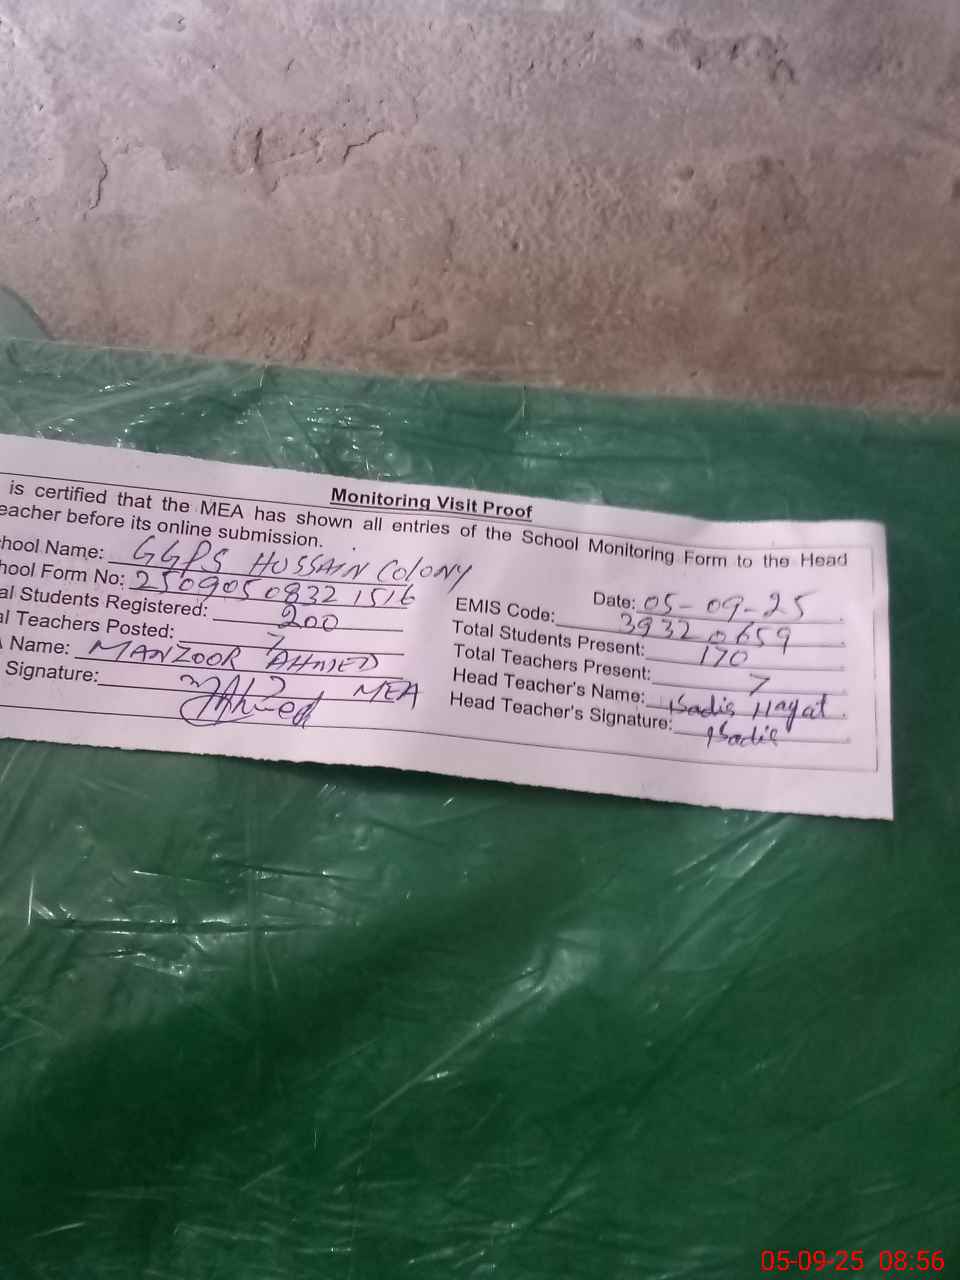 Monitoring Visit Proof
is certified that the MEA has shown all entries of the School Monitoring Form to the Head
eacher before its online submission.
hool Name: GGPS HUSSAIN COLONY
Date: 05-09-25
hool Form No: 2509050832 1516
EMIS Code: 39320659
al Students Registered: 200
Total Students Present: 170
al Teachers Posted: 7
Total Teachers Present: 7
Name: MANZOOR AHMED
Head Teacher's Name: Hayat
Signature: MEA
Head Teacher's Signature:
05-09-25 08:56